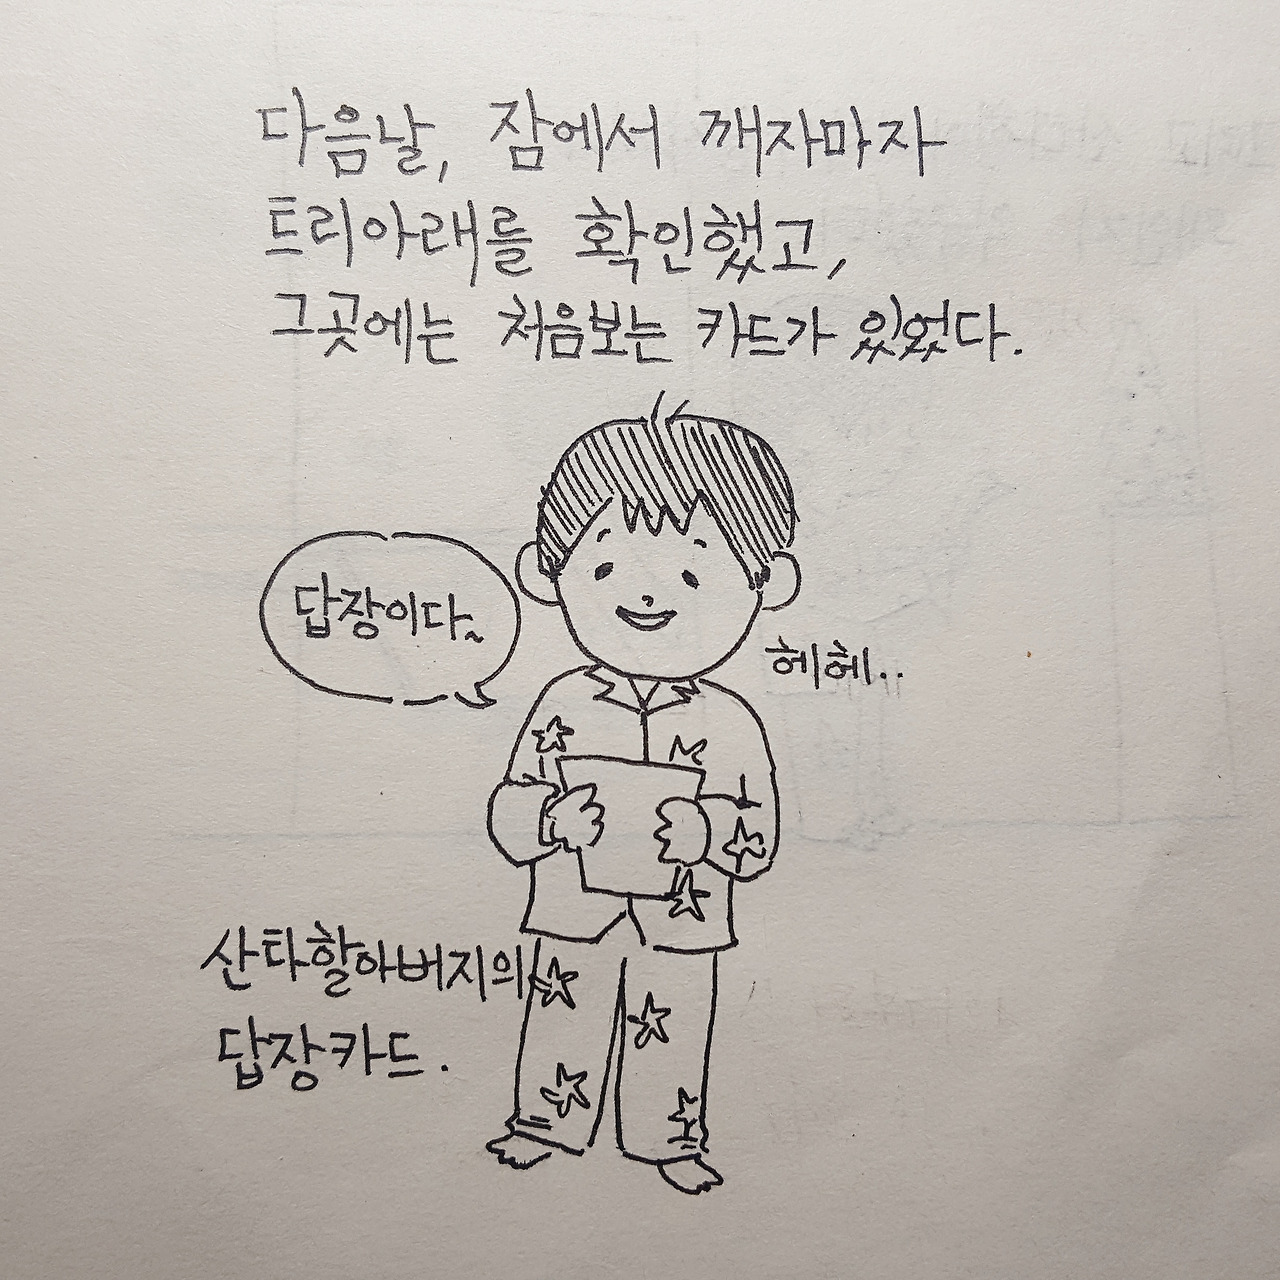 다음날, 잠에서 깨자마자
트리아래를 확인했고,
그곳에는 처음보는 카드가 있었다.
답장이다~
헤헤..
산타할아버지의
답장카드.